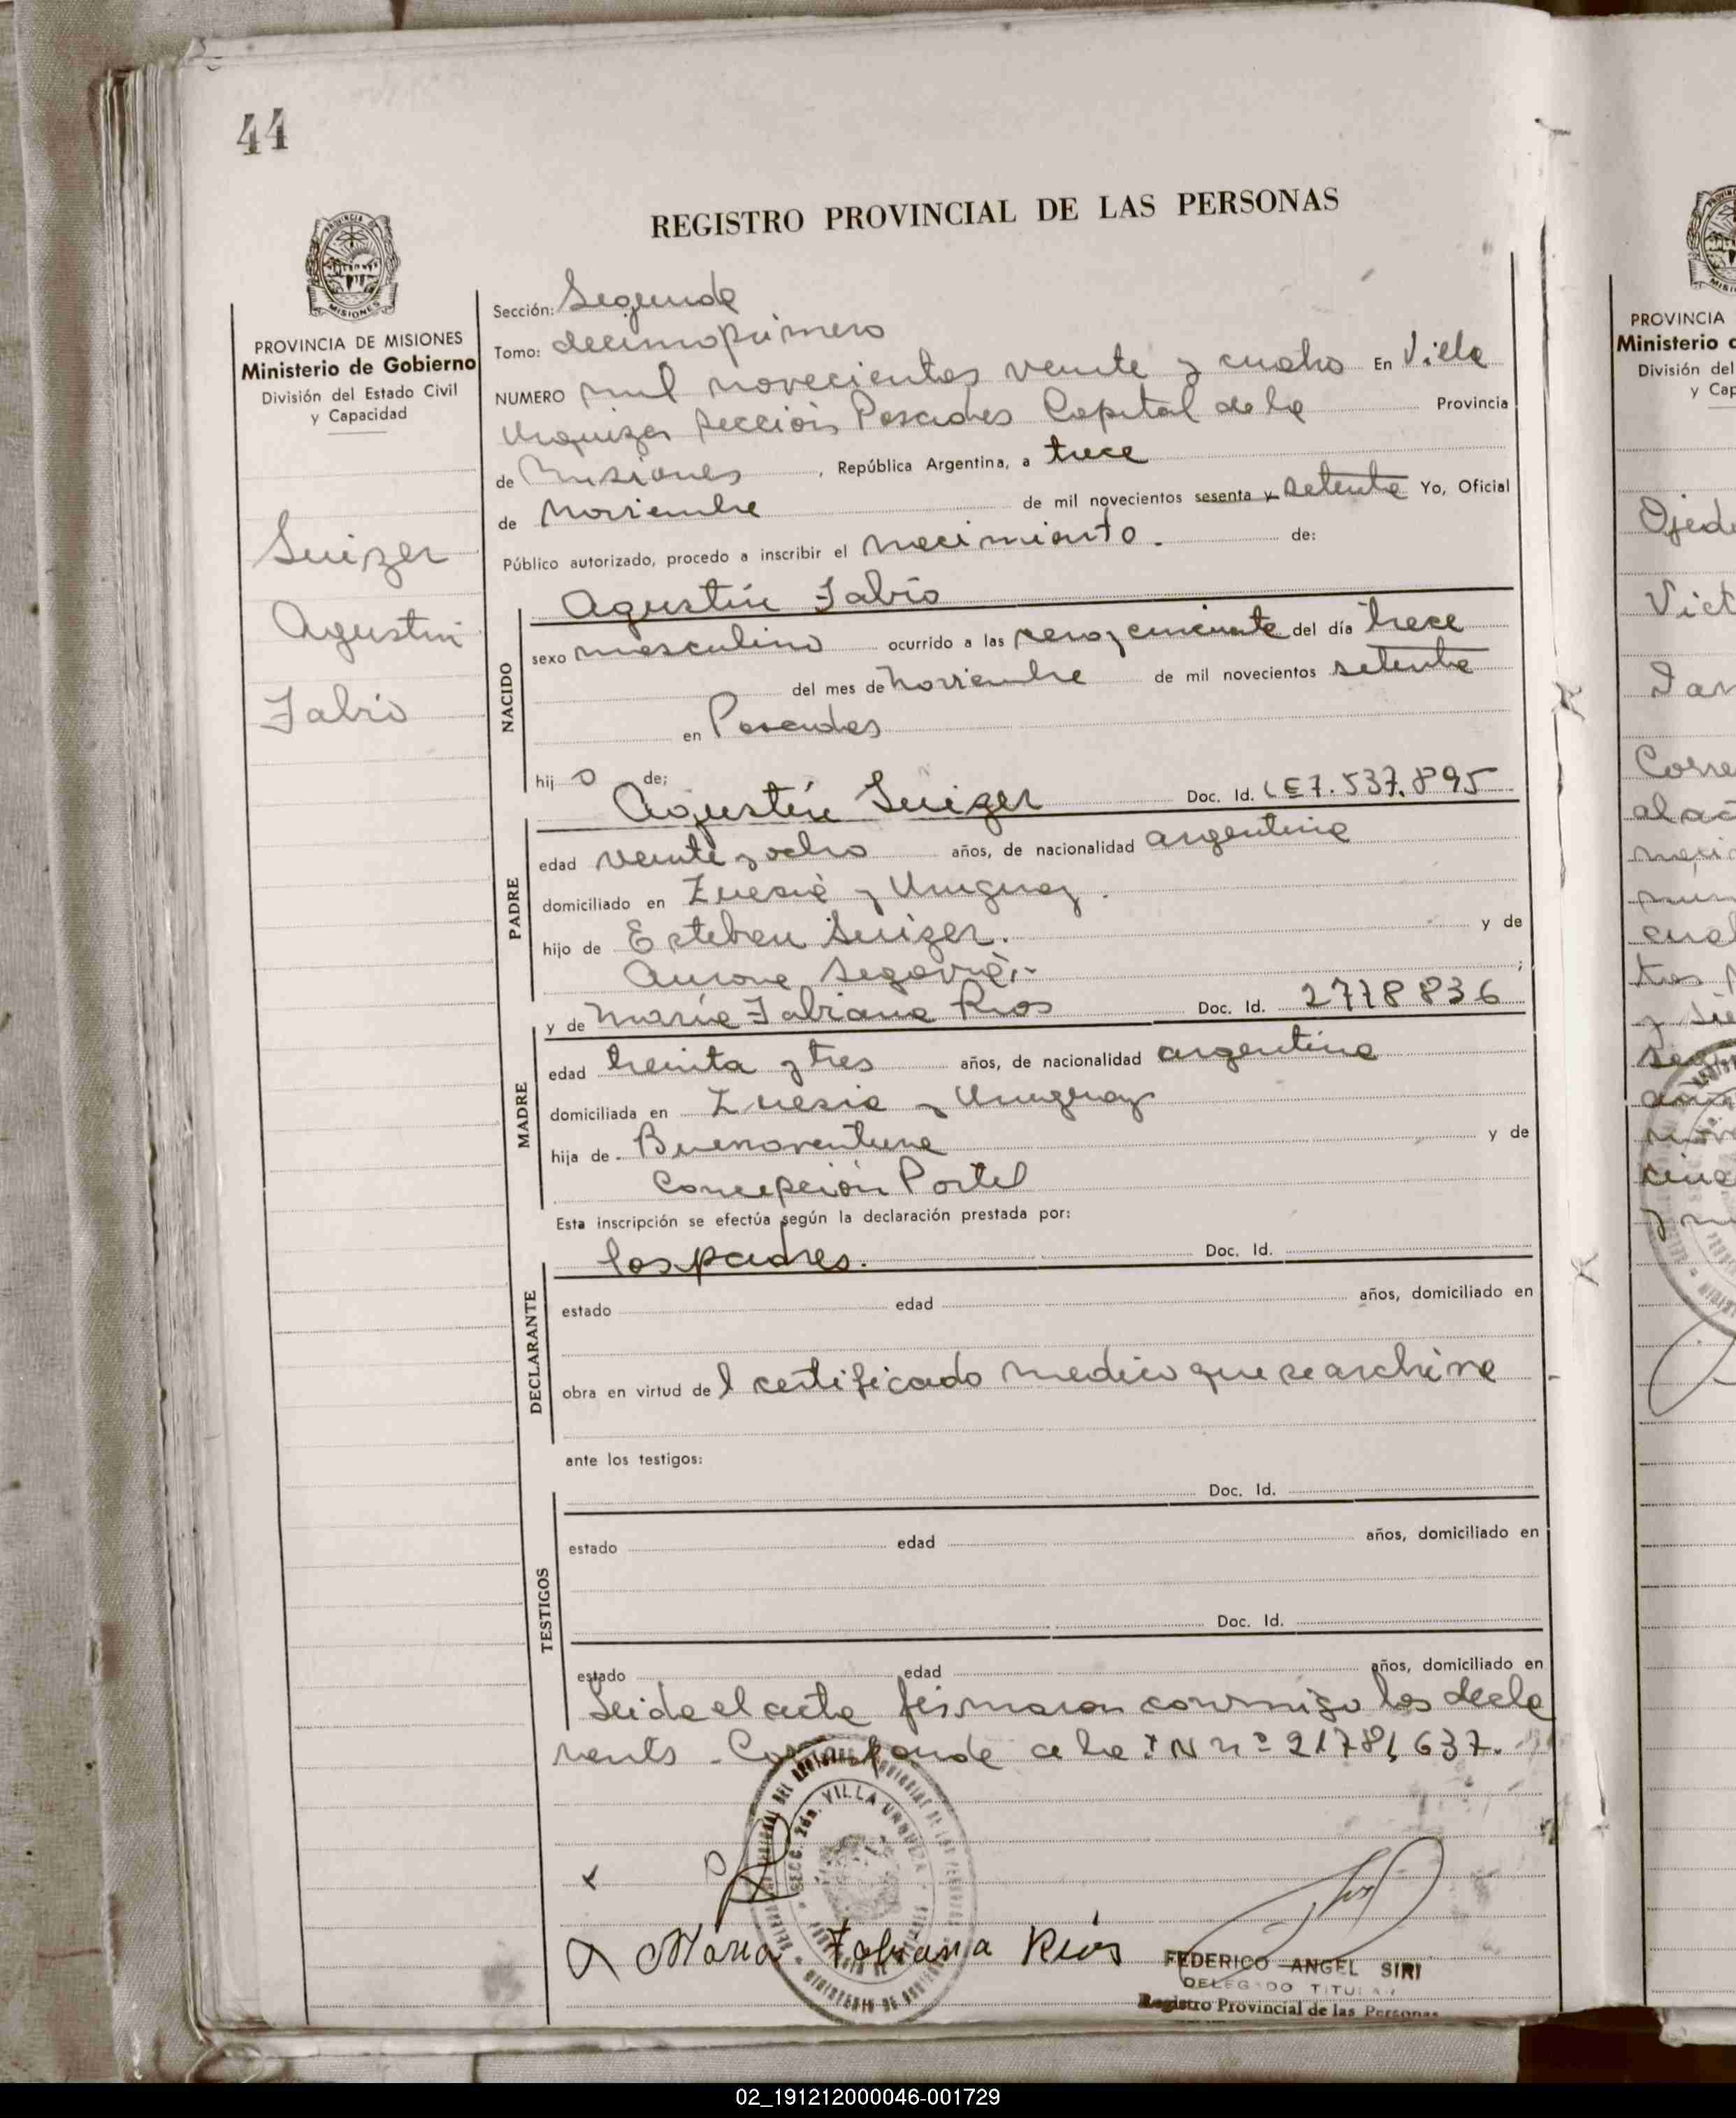 44
REGISTRO PROVINCIAL DE LAS PERSONAS
PROVINCIA DE MISIONES
Ministerio de Gobierno
División del Estado Civil
y Capacidad
Suizer
Agustin
Fabio
Sección: Segunda
Tomo: decimoprimero
NUMERO mil novecientos veinte y cuatro En Villa
Urquiza Sección Posadas Capital de la Provincia
de Misiones, República Argentina, a trece
de Noviembre de mil novecientos sesenta y setenta Yo, Oficial
Público autorizado, procedo a inscribir el nacimiento. de:
NACIDO
Agustín Fabio
sexo masculino ocurrido a las cero y cincuenta del día trece
del mes de noviembre de mil novecientos setenta
en Posadas
hij o de;
PADRE
Agustín Suizer Doc. Id. LE 7.537.895
edad veinte y ocho años, de nacionalidad argentina
domiciliado en y Uruguay.
hijo de Esteban Suizer. y de
Aurora Segovia.- ;
MADRE
y de María Fabiana Rios Doc. Id. 2778836
edad treinta y tres años, de nacionalidad argentina
domiciliada en y Uruguay
hija de Buenaventura y de
Concepción Portel
Esta inscripción se efectúa según la declaración prestada por:
DECLARANTE
los padres. Doc. Id.
estado edad años, domiciliado en
obra en virtud del certificado medico que se archiva
ante los testigos:
TESTIGOS
Doc. Id.
estado edad años, domiciliado en
Doc. Id.
estado edad años, domiciliado en
Leida el acta firmaron conmigo los decla
rants - Corresponde a la nº 21781637.
SECC. 2da. VILLA URQUIZA
Maria Fabiana Rios
FEDERICO ANGEL SIRI
DELEGADO TITULAR
Registro Provincial de las Personas
PROVINCIA
Ministerio d
División del
y Cap
Ojed
Vict
02_191212000046-001729